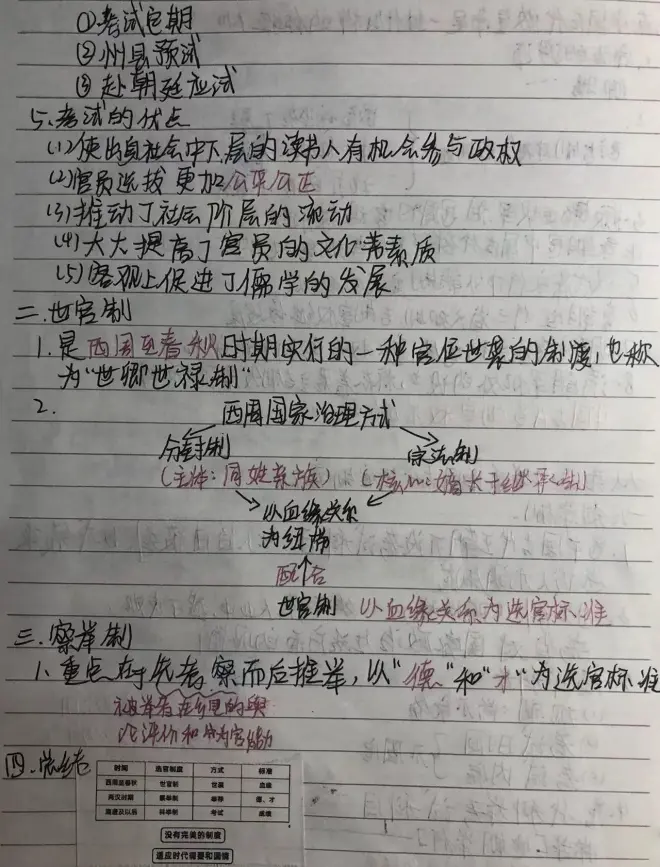 ①考试定期
②州县预试
③赴朝廷应试
5.考试的优点
(1)使出身社会中下层的读书人有机会参与政权
(2)官员选拔更加公平公正
(3)推动了社会阶层的流动
(4)大大提高了官员的文化素质
(5)客观上促进了儒学的发展
二.世官制
1.是西周至春秋时期实行的一种官位世袭的制度,也称
为“世卿世禄制”
2.
西周国家治理方式
分封制 宗法制
(主体:同姓亲族) (核心:嫡长子继承制)
以血缘关系
为纽带
配合
世官制 以血缘关系为选官标准
三.察举制
1.重点在于先考察而后推举,以“德”和“才”为选官标准
被举者在乡里的舆
论评价和为官能力
四.总结
时间 选官制度 方式 标准
西周至春秋 世官制 世袭 血缘
两汉时期 察举制 举荐 德、才
隋唐及以后 科举制 考试 成绩
没有完美的制度
适应时代需要和国情